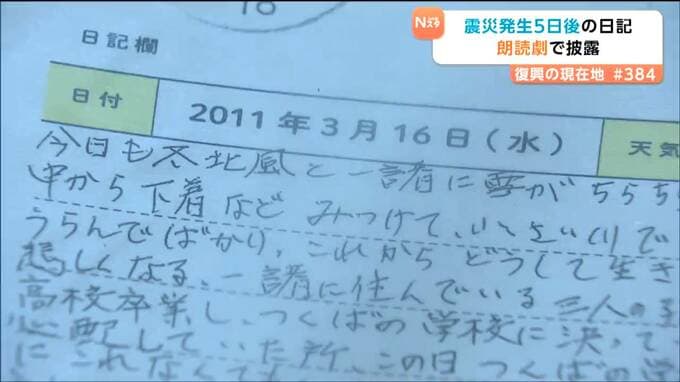 Nスタ
震災発生5日後の日記
朗読劇で披露
復興の現在地 #384
16
日記欄
日付 2011年3月16日(水) 天気
今日も冬北風と一諸に雪がちらちら
中から下着などみつけて、
うらんでばかり、これからどうして生き
しくなる、一諸に住んでいる三人の
高校卒業し、つくばの学校に決って
心配していた所、この日つくばの学
にこれなくても